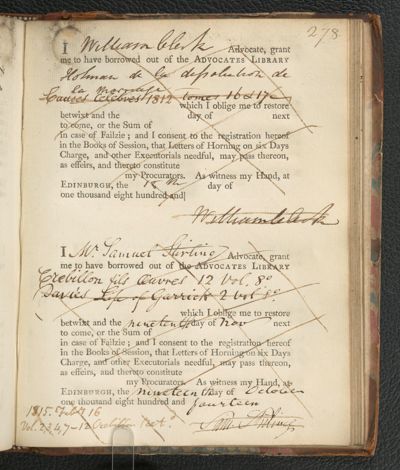 278
I William Clerk Advocate, grant
me to have borrowed out of the ADVOCATES LIBRARY
Hofman de la dissolution de
la
Causes Celebres 1812 tomes 16 & 17
which I oblige me to restore
betwixt and the day of next
to come, or the Sum of
in case of Failzie; and I consent to the registration hereof
in the Books of Session, that Letters of Horning on six Days
Charge, and other Executorials needful, may pass thereon,
as effeirs, and thereto constitute
my Procurators. As witness my Hand, at
EDINBURGH, the day of
one thousand eight hundred and
William Clerk
I Mr. Samuel Stirling Advocate, grant
me to have borrowed out of the ADVOCATES LIBRARY
Crebillon fils Œuvres 12 Vol. 8o
Davies Life of Garrick 2 vol 8o
which I oblige me to restore
betwixt and the nineteenth day of Nov next
to come, or the Sum of
in case of Failzie; and I consent to the registration hereof
in the Books of Session, that Letters of Horning on six Days
Charge, and other Executorials needful, may pass thereon,
as effeirs, and thereto constitute
my Procurators. As witness my Hand, at
EDINBURGH, the nineteenth day of October
one thousand eight hundred and fourteen
1815. Feby 16
Vol. 2 3 4 7-12 Crebillon
Sam Stirling